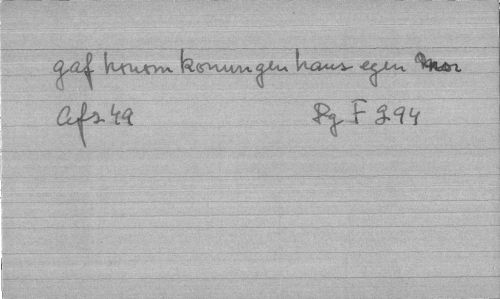 gaf honom konungen hans egen
Afs 49 Rg F 294